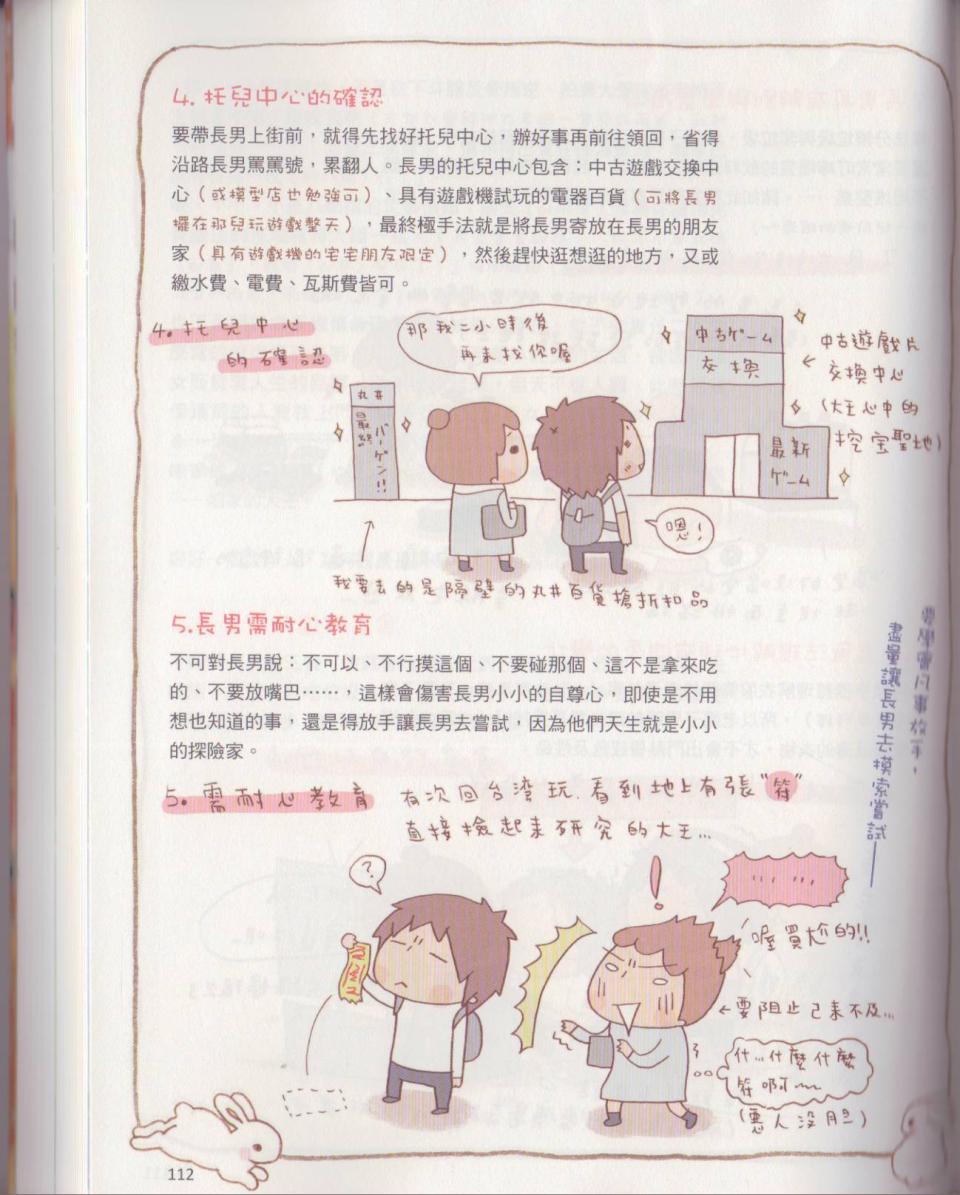 4. 托兒中心的確認
要帶長男上街前，就得先找好托兒中心，辦好事再前往領回，省得
沿路長男罵罵號，累翻人。長男的托兒中心包含：中古遊戲交換中
心（或模型店也勉強可）、具有遊戲機試玩的電器百貨（可將長男
擺在那兒玩遊戲整天），最終極手法就是將長男寄放在長男的朋友
家（具有遊戲機的宅宅朋友限定），然後趕快逛想逛的地方，又或
繳水費、電費、瓦斯費皆可。
4. 托兒中心
的確認
那我二小時後
再來找你喔
丸井
最終
バーゲン!!
中古ゲーム
交換
最新
ゲーム
中古遊戲片
交換中心
(大王心中的
挖宝聖地)
嗯!
我要去的是隔壁的丸井百貨搶折扣品
5.長男需耐心教育
不可對長男說：不可以、不行摸這個、不要碰那個、這不是拿來吃
的、不要放嘴巴……，這樣會傷害長男小小的自尊心，即使是不用
想也知道的事，還是得放手讓長男去嘗試，因為他們天生就是小小
的探險家。
要學會凡事放手，
盡量讓長男去摸索嘗試——
5. 需耐心教育
有次回台灣玩，看到地上有張"符"
直接撿起來研究的大王...
?
!
... ...
喔買尬的!!
←要阻止已來不及...
什...什麼什麼
符啊~~
(惡人沒胆)
112